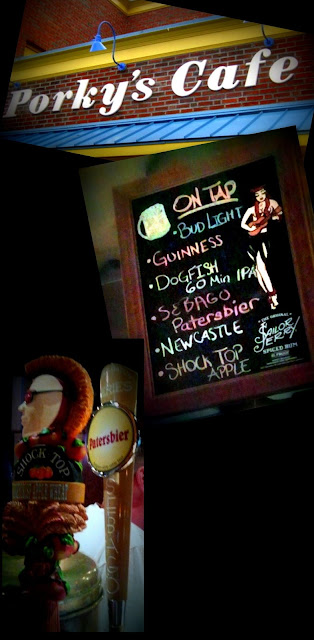 Porky's Cafe
ON TAP
• BUD LIGHT
• GUINNESS
• DOGFISH
60 Min IPA
• SEBAGO
Patersbier
• NEWCASTLE
• SHOCK TOP
APPLE
THE ORIGINAL
SAILOR
JERRY
SPICED RUM
SHOCK TOP
Patersbier
SEBAGO